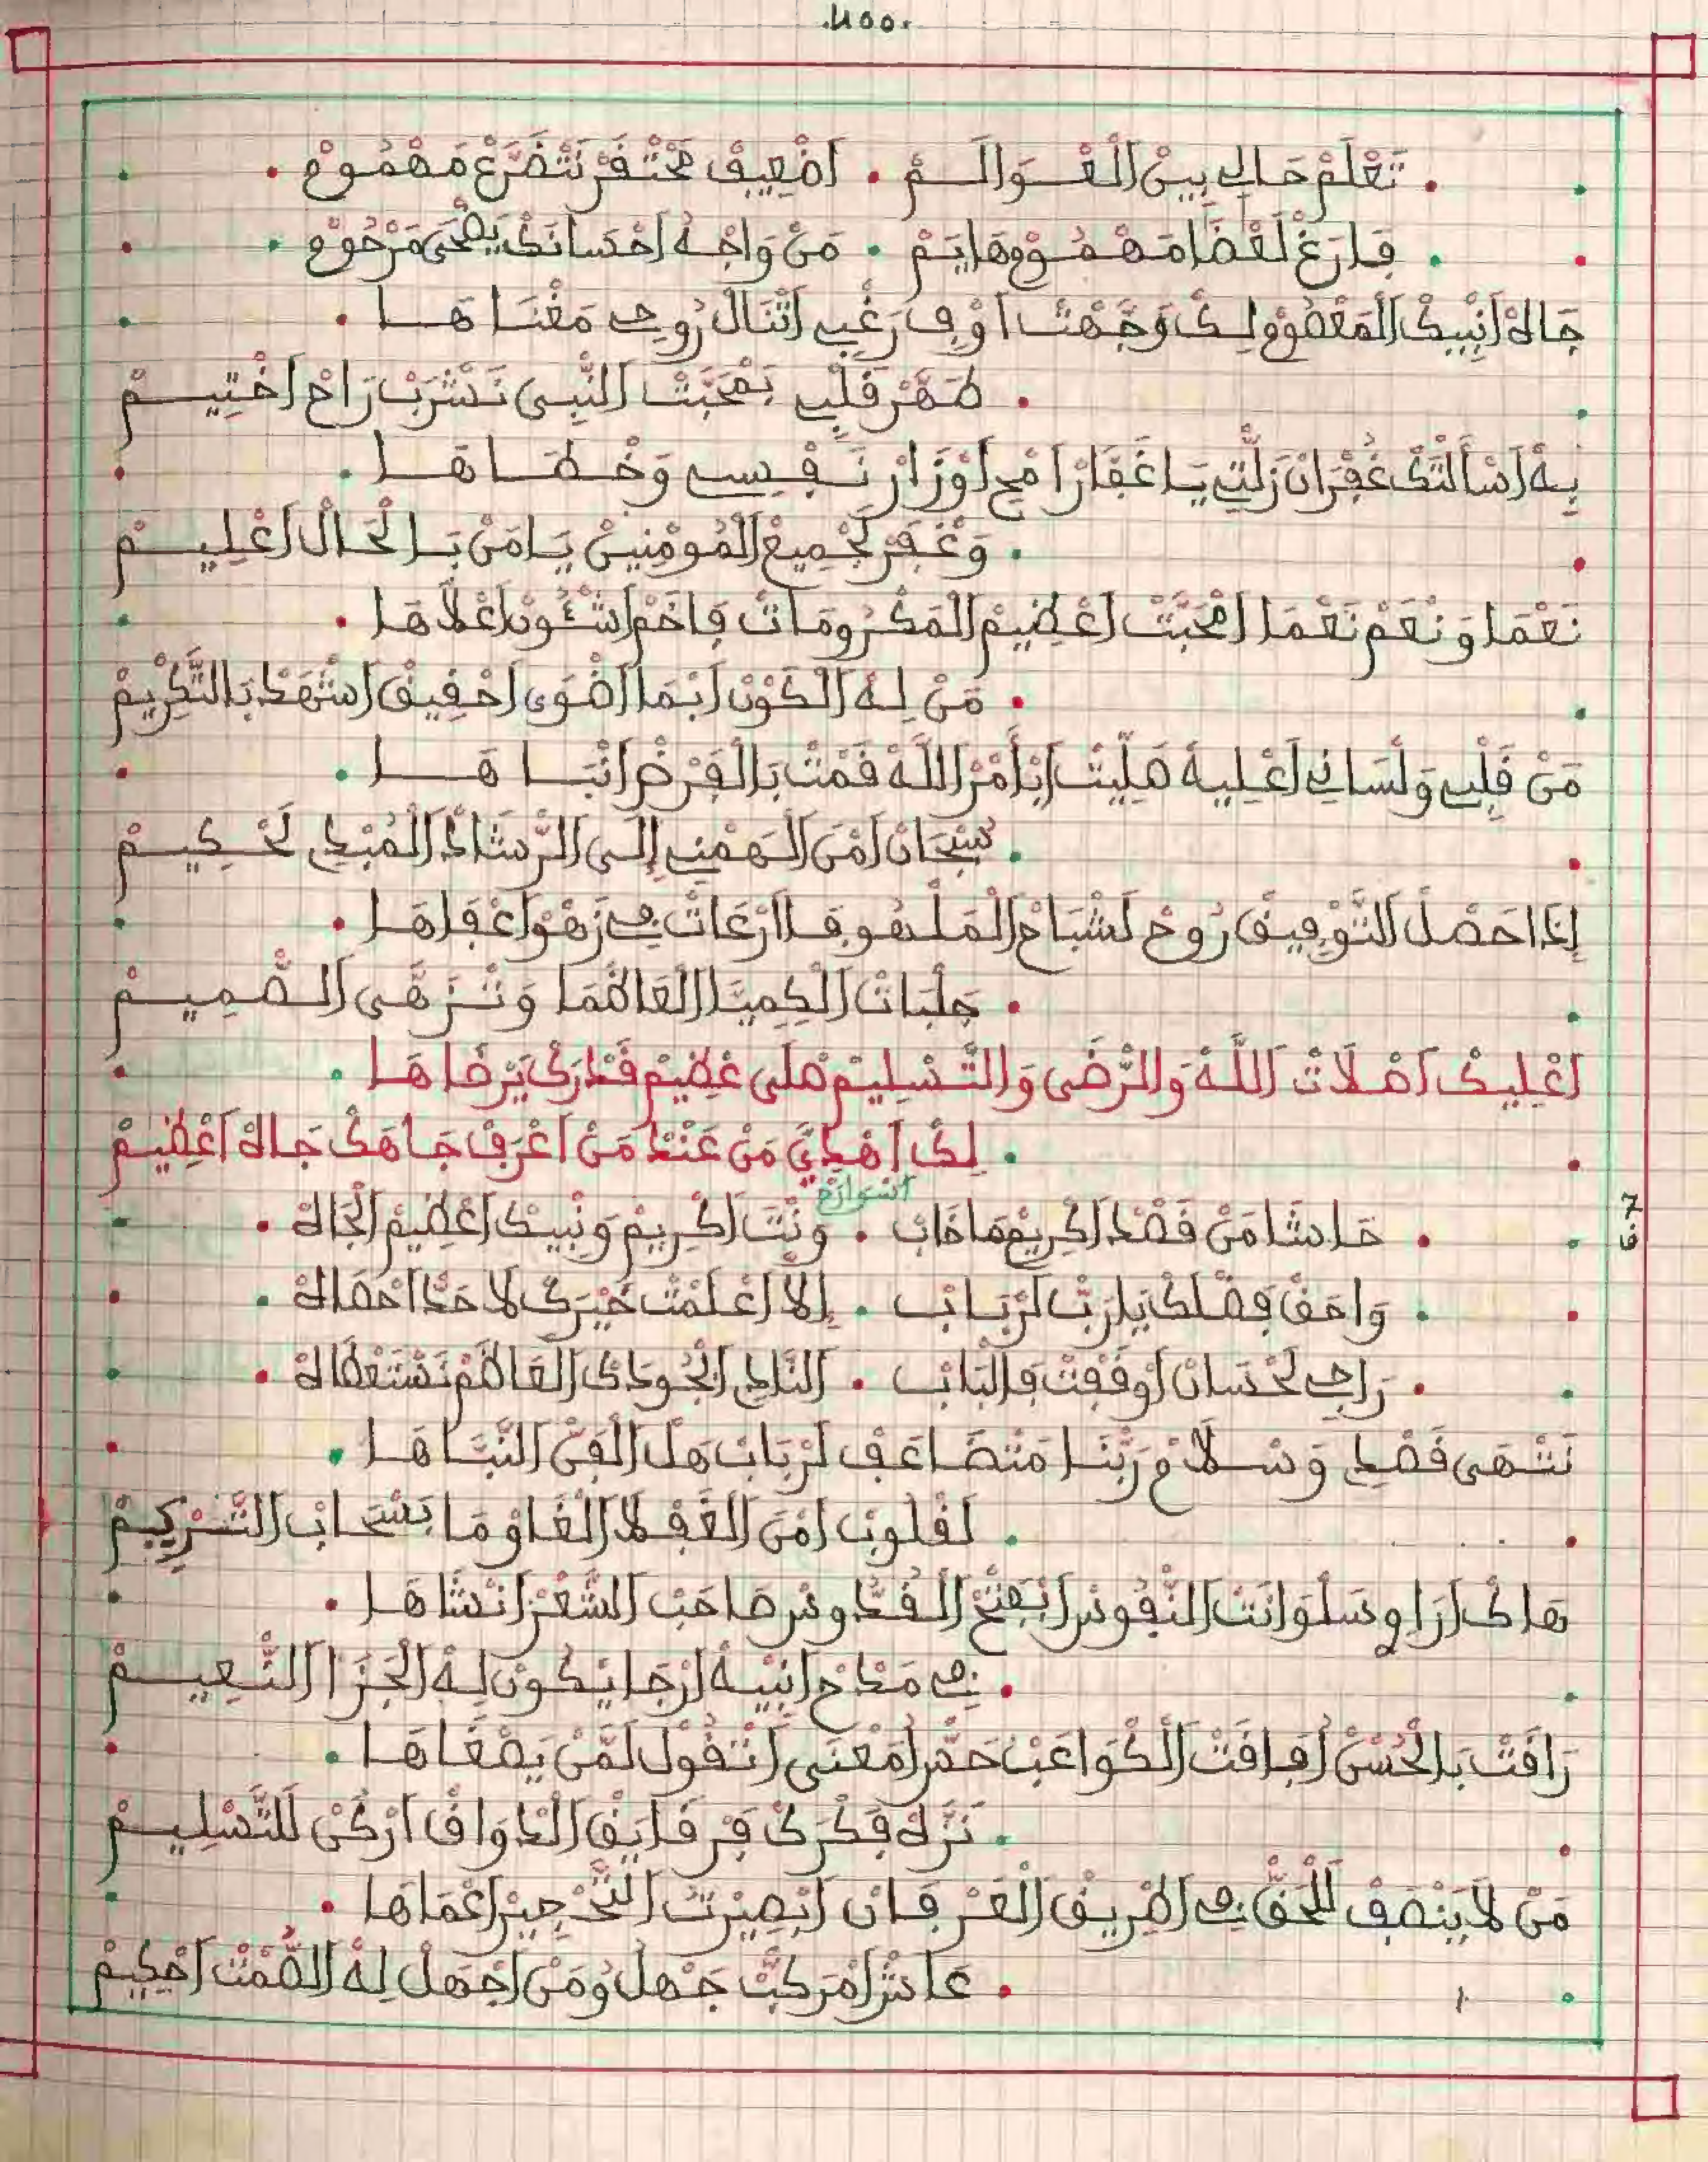 تَعْلَمْ حَالِي بِينْ الْعْـوَالَـمْ . اضْعِيفْ مَحْتَقَرْ نَتْضَرَّعْ مَهْمُومْ .
فَارَغْ لَعْضَا مَهْمُومْ وهَايَمْ . مَنْ وَاجَهْ احْسَانَكْ يَضْحَى مَرْحُومْ .
جَاهْ انْبِيكْ الْمَعْصُومْ لِكْ وَجَّهْتْ اوْفِ رَغْبِي اتْنَالْ رُوحِي مَغْنَاهَـا .
. طَهَّرْ قَلْبِي بَمْحَبَّتْ النّبِي نَشْرَبْ رَاحْ اخْتِيـمْ
بِهْ اسْأَلْتَكْ غُفْرَانْ زَلّتِي يَا غَفَّارْ امْحِ اوْزَارْ نَـفْسِي وَخْطَـاهَـا .
. وَغْفَرْ لَجْمِيعْ الْمُومْنِينْ يَامَنْ بَـالْحَالْ اعْلِيـمْ
نَعْمَا وَنْعَمْ نَعْمَا امْحَبَّتْ اعْظِيمْ الْمَكْرُومَاتْ فَاخَمْ اشْـُونْ اعْلَاهَا .
. مَنْ لِهْ الْكَوْنْ ابْمَا اضْوَى احْقِيقْ اشْهَدْ بَالتَّكْرِيمْ
مَنْ قَلْبِي وَلْسَانِي اعْلِيهْ صَلِّيتْ ابْأَمْرْ اللَّهْ قَمْتْ بَالْفَرْضْ انْبَـاهَـا .
. سُبْحَانْ امَنْ الْهَمْنِي إِلَـى الرّشَادْ الْمُبْدِي لَحْكِيـمْ
إِذَا حَصْلْ التَّوْفِيقْ رُوحْ لَشْبَاحْ الْمَلْهُوفَا ارْعَاتْ فِي زَهْوْ اعْفَاهَا .
. جَلْبَاتْ الْكِمِيَّا الْعَاظْمَا وَتْنَزْهَى الصّمِيـمْ
اعْلِيكْ اصْلَاتْ اللَّهْ وَالرّضَى وَالتّسْلِيمْ صَلَّى عْظِيمْ قَدْرَكْ يَرْضَاهَـا .
. لِكْ اهْدَانِي مَنْ عَنْدْ مَنْ اعْرَفْ جَاهَكْ جَاهْ اعْظِيـمْ
. حَاشَا مَنْ قَصْدْ اكْرِيمْ مَا خَابْ . وَنْتَ اكْرِيمْ وَنْبِيكْ اعْظِيمْ الْجَاهْ .
. وَاصَقْ فَضْلَكْ يَا رَبّ لَرْبَـابْ . إِلَا اعْلَمْتْ خَيْرَكْ لَا حَدّ احْصَاهْ .
. رَاجِي لَحْسَانْ اوْقَفْتْ فَالْبَابْ . النَّادِي الْجُودَكْ الْعَاظَمْ نَسْتَعْطَاهْ .
نَنْهَى قَصْدِي وَسْـلَامْ رَبّنَـا مَتْضَـاعَفْ لَرْبَابْ هَلْ الْفَنّ النّبَـاهَـا .
. لَقْلُوبْ امْنَ الْغَفْلَا الْغَاوْمَا بَسْحَابْ التَّسْرِيمْ
هَاكْ ارَاوِي سَلْوَانَتْ النّفُوسْ ابْفَتْحْ الْقُدّوسْ صَاحَبْ الشّعْرْ انْشَاهَـا .
. فِي مَدْحْ انْبِيهْ ارْجَا يْكُونْ لِهْ الْجَزَا النّعِيـمْ
رَاقَتْ بَالْحُسْنْ افَاقَتْ الْكْوَاعَبْ حَصّرْ امَعْنَى اتْقُولْ لَمّنْ يَصْغَاهَـا .
. نَزّهْ فَكْرَكْ فَرْقَايَقْ الدْوَاقْ ارْكَنْ للتَّسْلِيـمْ
مَنْ لَا يَنْصَفْ للْحَقّ فِي اطْرِيقْ الْعَرْفَانْ ابْصِيرْتُ التّحْجِيرْ اعْمَاهَا .
. عَاشْ امْرَكّبْ جَهْلُ وُمَنْ اجْهَلْ لِهْ الصّمْتْ احْكِيمْ